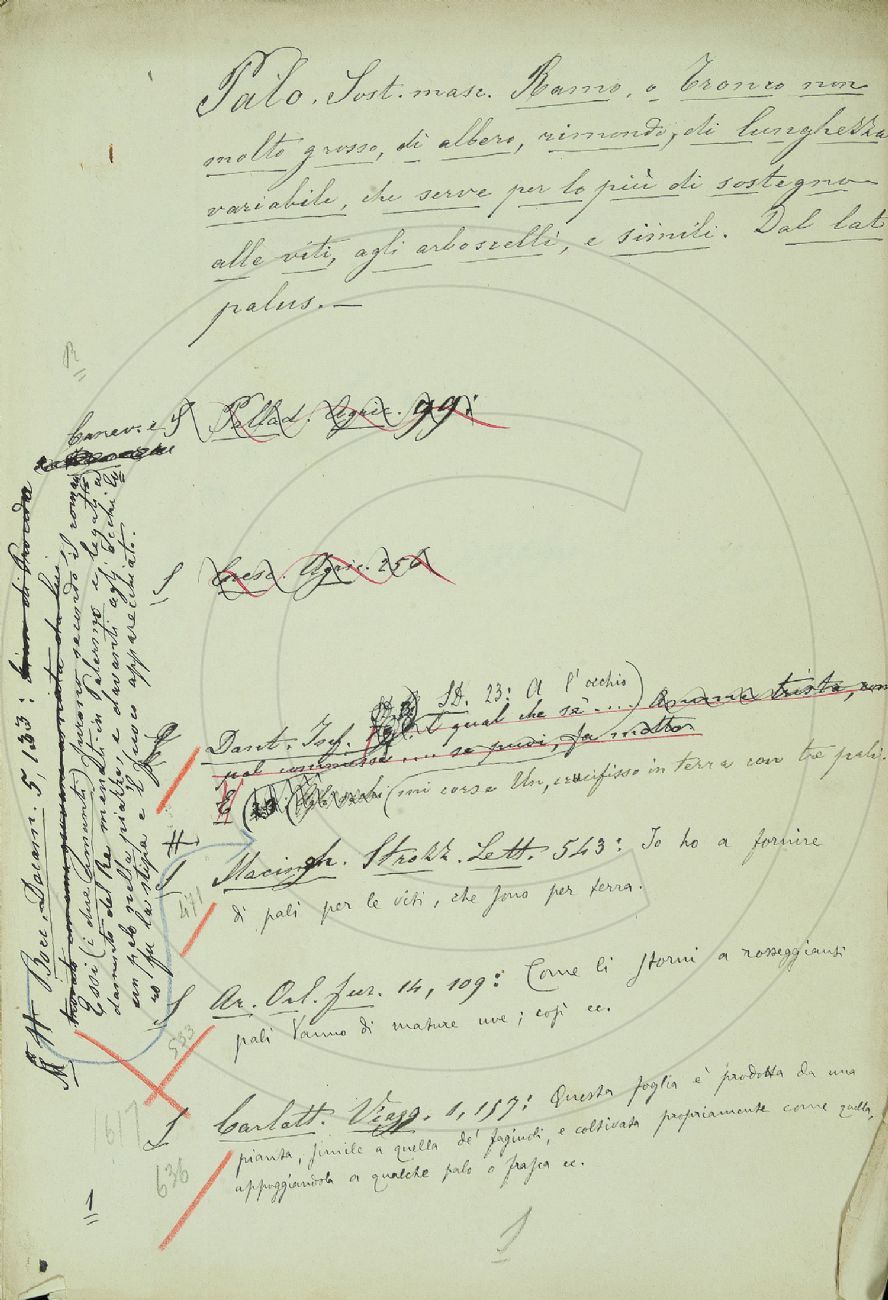 Palo. Sost. masc. Ramo, o Tronco non
molto grosso, di albero, rimondo, di lunghezza
variabile, che serve per lo più di sostegno
alle viti, agli arboscelli, e simili. Dal lat
palus. —
R
Canev. e S Pallad. Agric. 99:
S Cresc. Agric. 256
SD. 23: A l'occhio
Dant. Inf. E qual che se' .... Anima trista, com
pal commessa .... se puoi, fa motto
E mi corse Un, crucifisso in terra con tre pali.
#
S Macingh. Strozz. Lett. 543: Io ho a fornire
di pali per le viti, che sono per terra.
471
S Ar. Orl. fur. 14, 109: Come li storni a rosseggianti
pali Vanno di mature uve; così ec.
533
S Carlett. Viagg. 1, 157: Questa foglia è prodotta da una
pianta, simile a quella de' fagiuoli, e coltivata propriamente come quella,
appoggiandola a qualche palo o frasca ec.
1617
636
1
S
M # Bocc. Decam. 5, 133: di Procida
trovato con una giovane amata da lui
Essi (i due amanti) furono secondo il coman
damento del Re menati in Palermo e legati a
un palo nella piazza, e davanti agli occhi lo
ro fu la stipa e 'l fuoco apparecchiato.
C